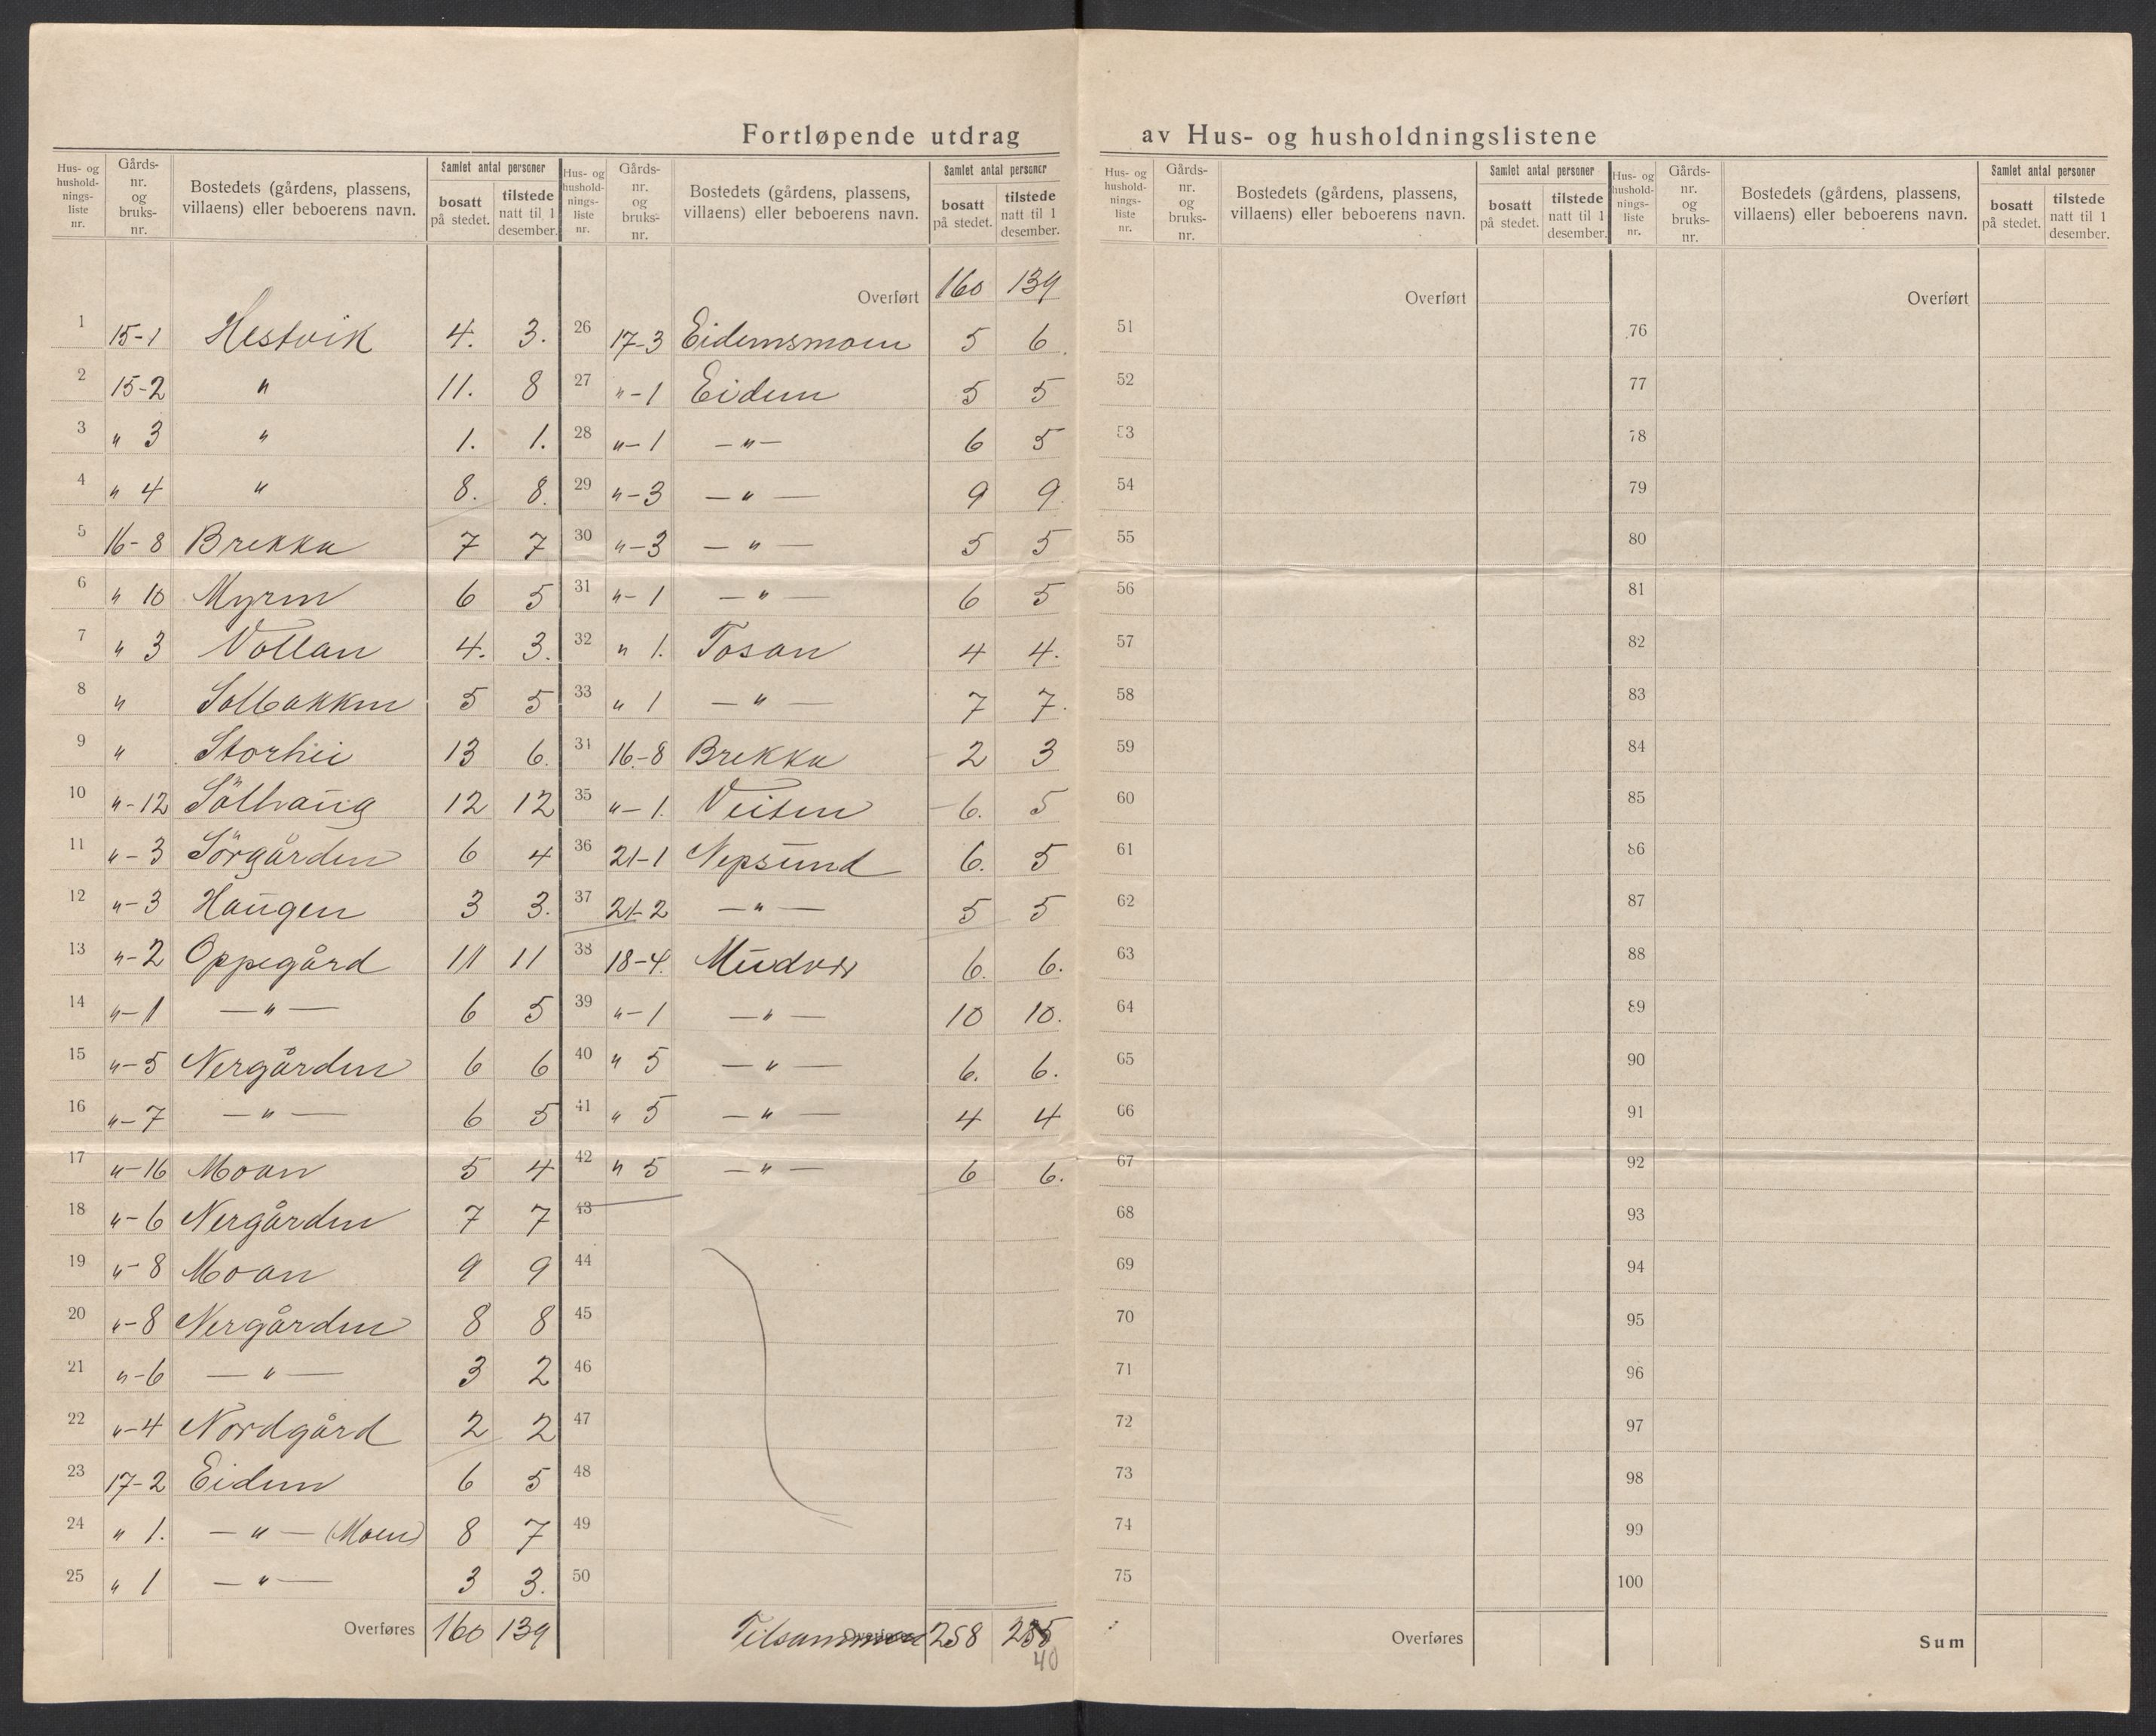 Fortløpende utdrag av Hus- og husholdningslistene
Hus- og hushold-nings-liste nr. Gårds-nr. og bruks-nr. Bostedets (gårdens, plassens, villaens) eller beboerens navn. Samlet antal personer bosatt på stedet. tilstede natt til 1 desember.
1 15-1 Hestvik 4. 3.
2 15-2 " 11. 8
3 " 3 " 1. 1.
4 " 4 " 8. 8.
5 16-8 Brekka 7 7
6 " 10 Myren 6 5
7 " 3 Vollan 4. 3.
8 " Solbakken 5 5
9 " Storhei 13 6.
10 "-12 Sölhaug 12 12
11 "-3 Sörgården 6 4
12 "-3 Haugen 3 3.
13 "-2 Oppegård 11 11
14 "-1 —"— 6 5
15 "-5 Nergården 6 6
16 "-7 —"— 6 5
17 "-16 Moan 5 4
18 "-6 Nergården 7 7
19 "-8 Moan 9 9
20 "-8 Nergården 8 8
21 "-6 —"— 3 2
22 "-4 Nordgård 2 2
23 17-2 Eidem 6 5
24 " 1. —"— (Moen) 8 7
25 " 1 —"— 3 3.
Overføres 160 139
Hus- og hushold-nings-liste nr. Gårds-nr. og bruks-nr. Bostedets (gårdens, plassens, villaens) eller beboerens navn. Samlet antal personer bosatt på stedet. tilstede natt til 1 desember.
Overført 160 139
26 17-3 Eidemsmoen 5 6.
27 "-1 Eidem 5 5
28 "-1 —"— 6 5
29 "-3 —"— 9 9.
30 "-3 —"— 5 5
31 "-1 —"— 6 5
32 " 1. Tosan 4 4.
33 " 1 —"— 7 7.
34 16-8 Brekka 2 3
35 "-1. Veiten 6. 5
36 21-1 Nepsund 6. 5
37 21-2 —"— 5 5
38 18-4. 6. 6.
39 "-1 —"— 10 10.
40 " 5 —"— 6. 6.
41 " 5 —"— 4 4
42 " 5 —"— 6 6.
43
44
45
46
47
48
49
50
Tilsammen Overføres 258 235
40
Hus- og hushold-nings-liste nr. Gårds-nr. og bruks-nr. Bostedets (gårdens, plassens, villaens) eller beboerens navn. Samlet antal personer bosatt på stedet. tilstede natt til 1 desember.
Overført
51
52
53
54
55
56
57
58
59
60
61
62
63
64
65
66
67
68
69
70
71
72
73
74
75
Overføres
Hus- og hushold-nings-liste nr. Gårds-nr. og bruks-nr. Bostedets (gårdens, plassens, villaens) eller beboerens navn. Samlet antal personer bosatt på stedet. tilstede natt til 1 desember.
Overført
76
77
78
79
80
81
82
83
84
85
86
87
88
89
90
91
92
93
94
95
96
97
98
99
100
Sum